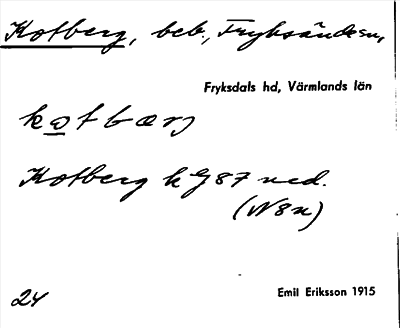 Kotberg, beb., Fryksände sn,
Fryksdals hd, Värmlands län
kotbærj
Kotberg k G 87 ned.
(N8n)
24
Emil Eriksson 1915